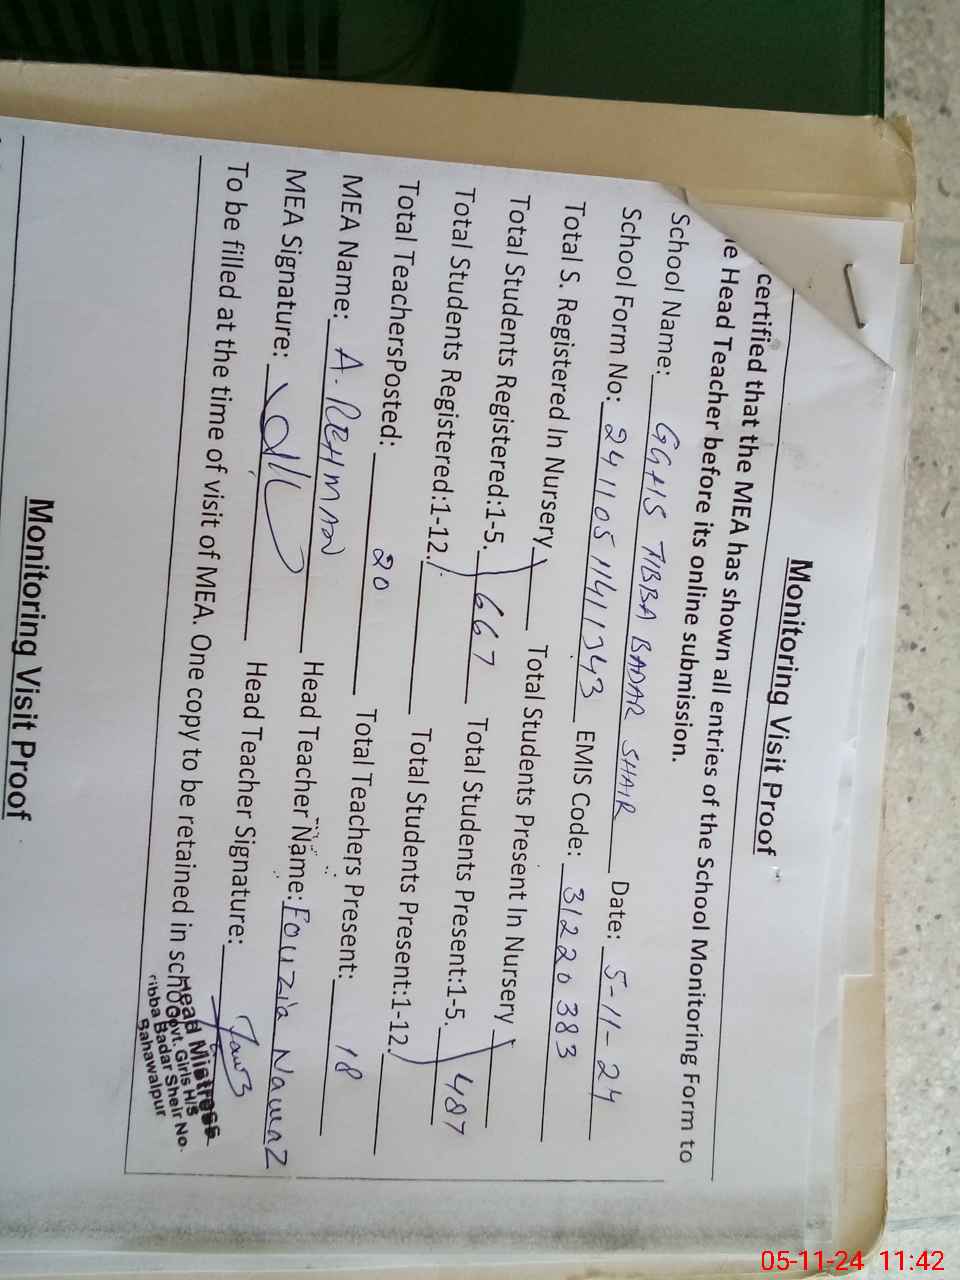 Monitoring Visit Proof
certified that the MEA has shown all entries of the School Monitoring Form to
Head Teacher before its online submission.
School Name: GGHS TIBBA BADAR SHAIR Date: 5-11-24
School Form No: EMIS Code: 31220383
Total S. Registered In Nursery Total Students Present In Nursery
Total Students Registered:1-5. 667 Total Students Present:1-5. 487
Total Students Registered:1-12. Total Students Present:1-12.
Total TeachersPosted: 20 Total Teachers Present: 18
MEA Name: A. REHMAN Head Teacher Name: Fouzia Nawaz
MEA Signature: Head Teacher Signature:
To be filled at the time of visit of MEA. One copy to be retained in
Head Mistress
Govt. Girls H/S
Badar Sheir No.
Bahawalpur
Monitoring Visit Proof
05-11-24 11:42